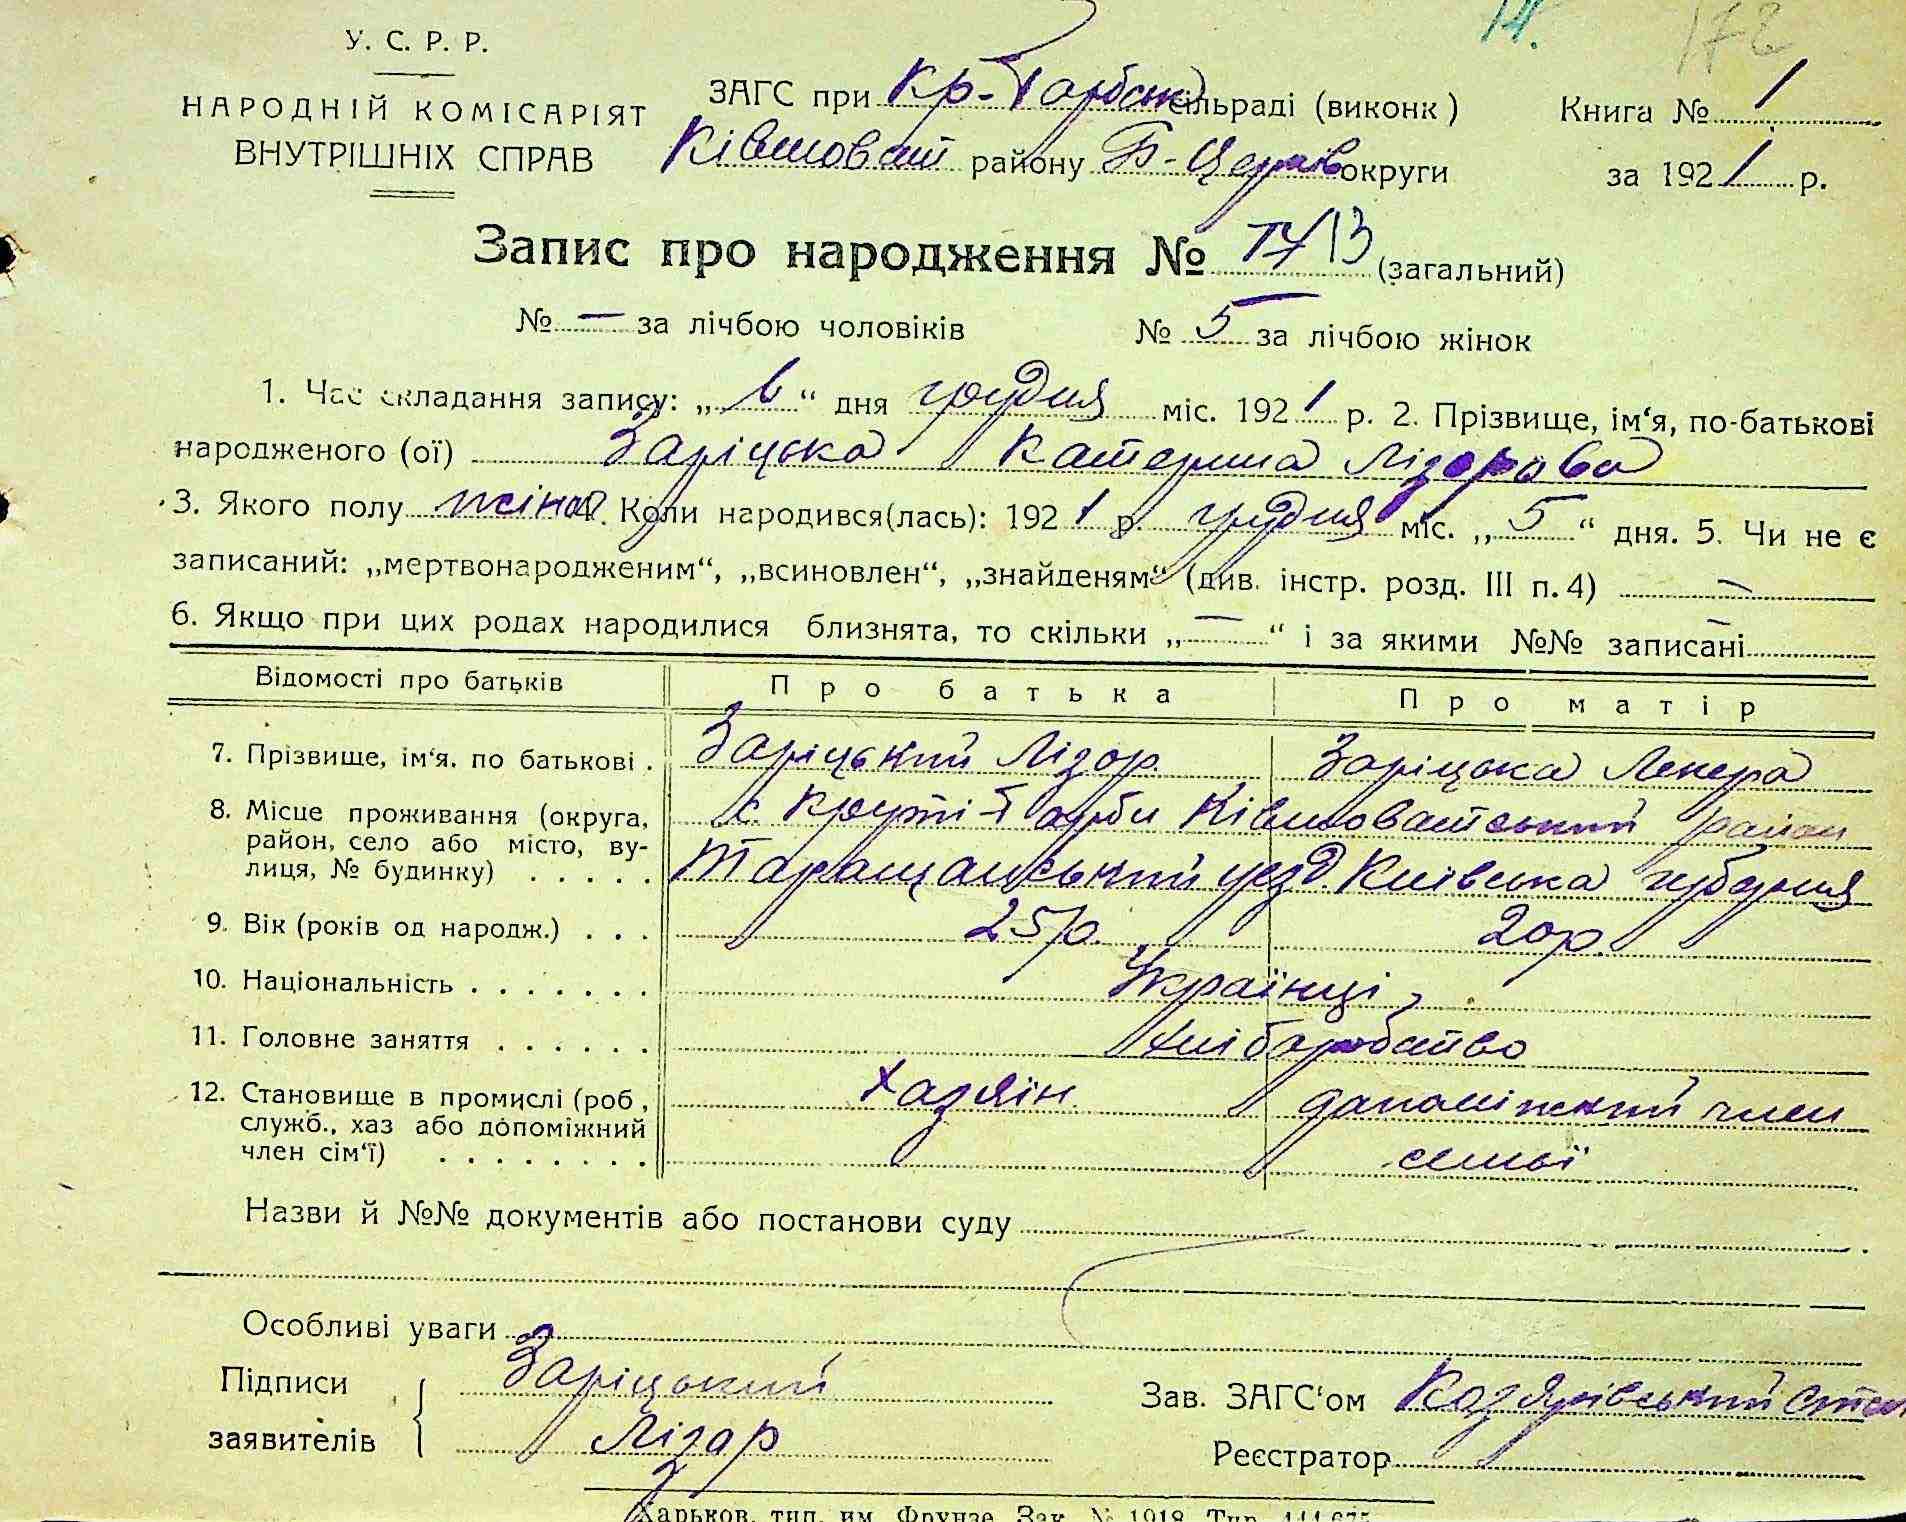 14.
172
У. С. Р. Р.
НАРОДНІЙ КОМІСАРІЯТ
ВНУТРІШНІХ СПРАВ
ЗАГС при Кр-Горбськ сільраді (виконк)
Ківшоват району Б-Церків округи
Книга № 1
за 1921 р.
Запис про народження № 13 (загальний)
№ — за лічбою чоловіків № 5 за лічбою жінок
1. Час складання запису: „6“ дня грудня міс. 1921 р. 2. Прізвище, ім‘я, по-батькові
народженого (ої) Заріцька Катерина Лізорова
3. Якого полу жіноч 4. Коли народився(лась): 1921 р. грудня міс. „5“ дня. 5. Чи не є
записаний: „мертвонародженим“, „всиновлен“, „знайденям“ (див. інстр. розд. III п. 4) —
6. Якщо при цих родах народилися близнята, то скільки „—“ і за якими №№ записані —
Відомості про батьків Про батька Про матір
7. Прізвище, ім‘я. по батькові . Заріцький Лізор. Заріцька Ликера
8. Місце проживання (округа, с. Круті-Горби Ківшоватський район
район, село або місто, ву-
лиця, № будинку) . . . . . Таращанський уезд. Київська губерния
9. Вік (років од народж.) . . . 25 р. 20 р.
10. Національність . . . . . . . Українці
11. Головне заняття . . . . . . Хліборобство
12. Становище в промислі (роб, Хазяїн допоміжний член
служб., хаз або допоміжний
член сім‘ї) . . . . . . . . семьї
Назви й №№ документів або постанови суду
Особливі уваги
Підписи Заріцький
заявителів Лізар
Зав. ЗАГС‘ом
Реєстратор
Харьков, тип. им. Фрунзе Зак. № 1918 Тир. 444.675